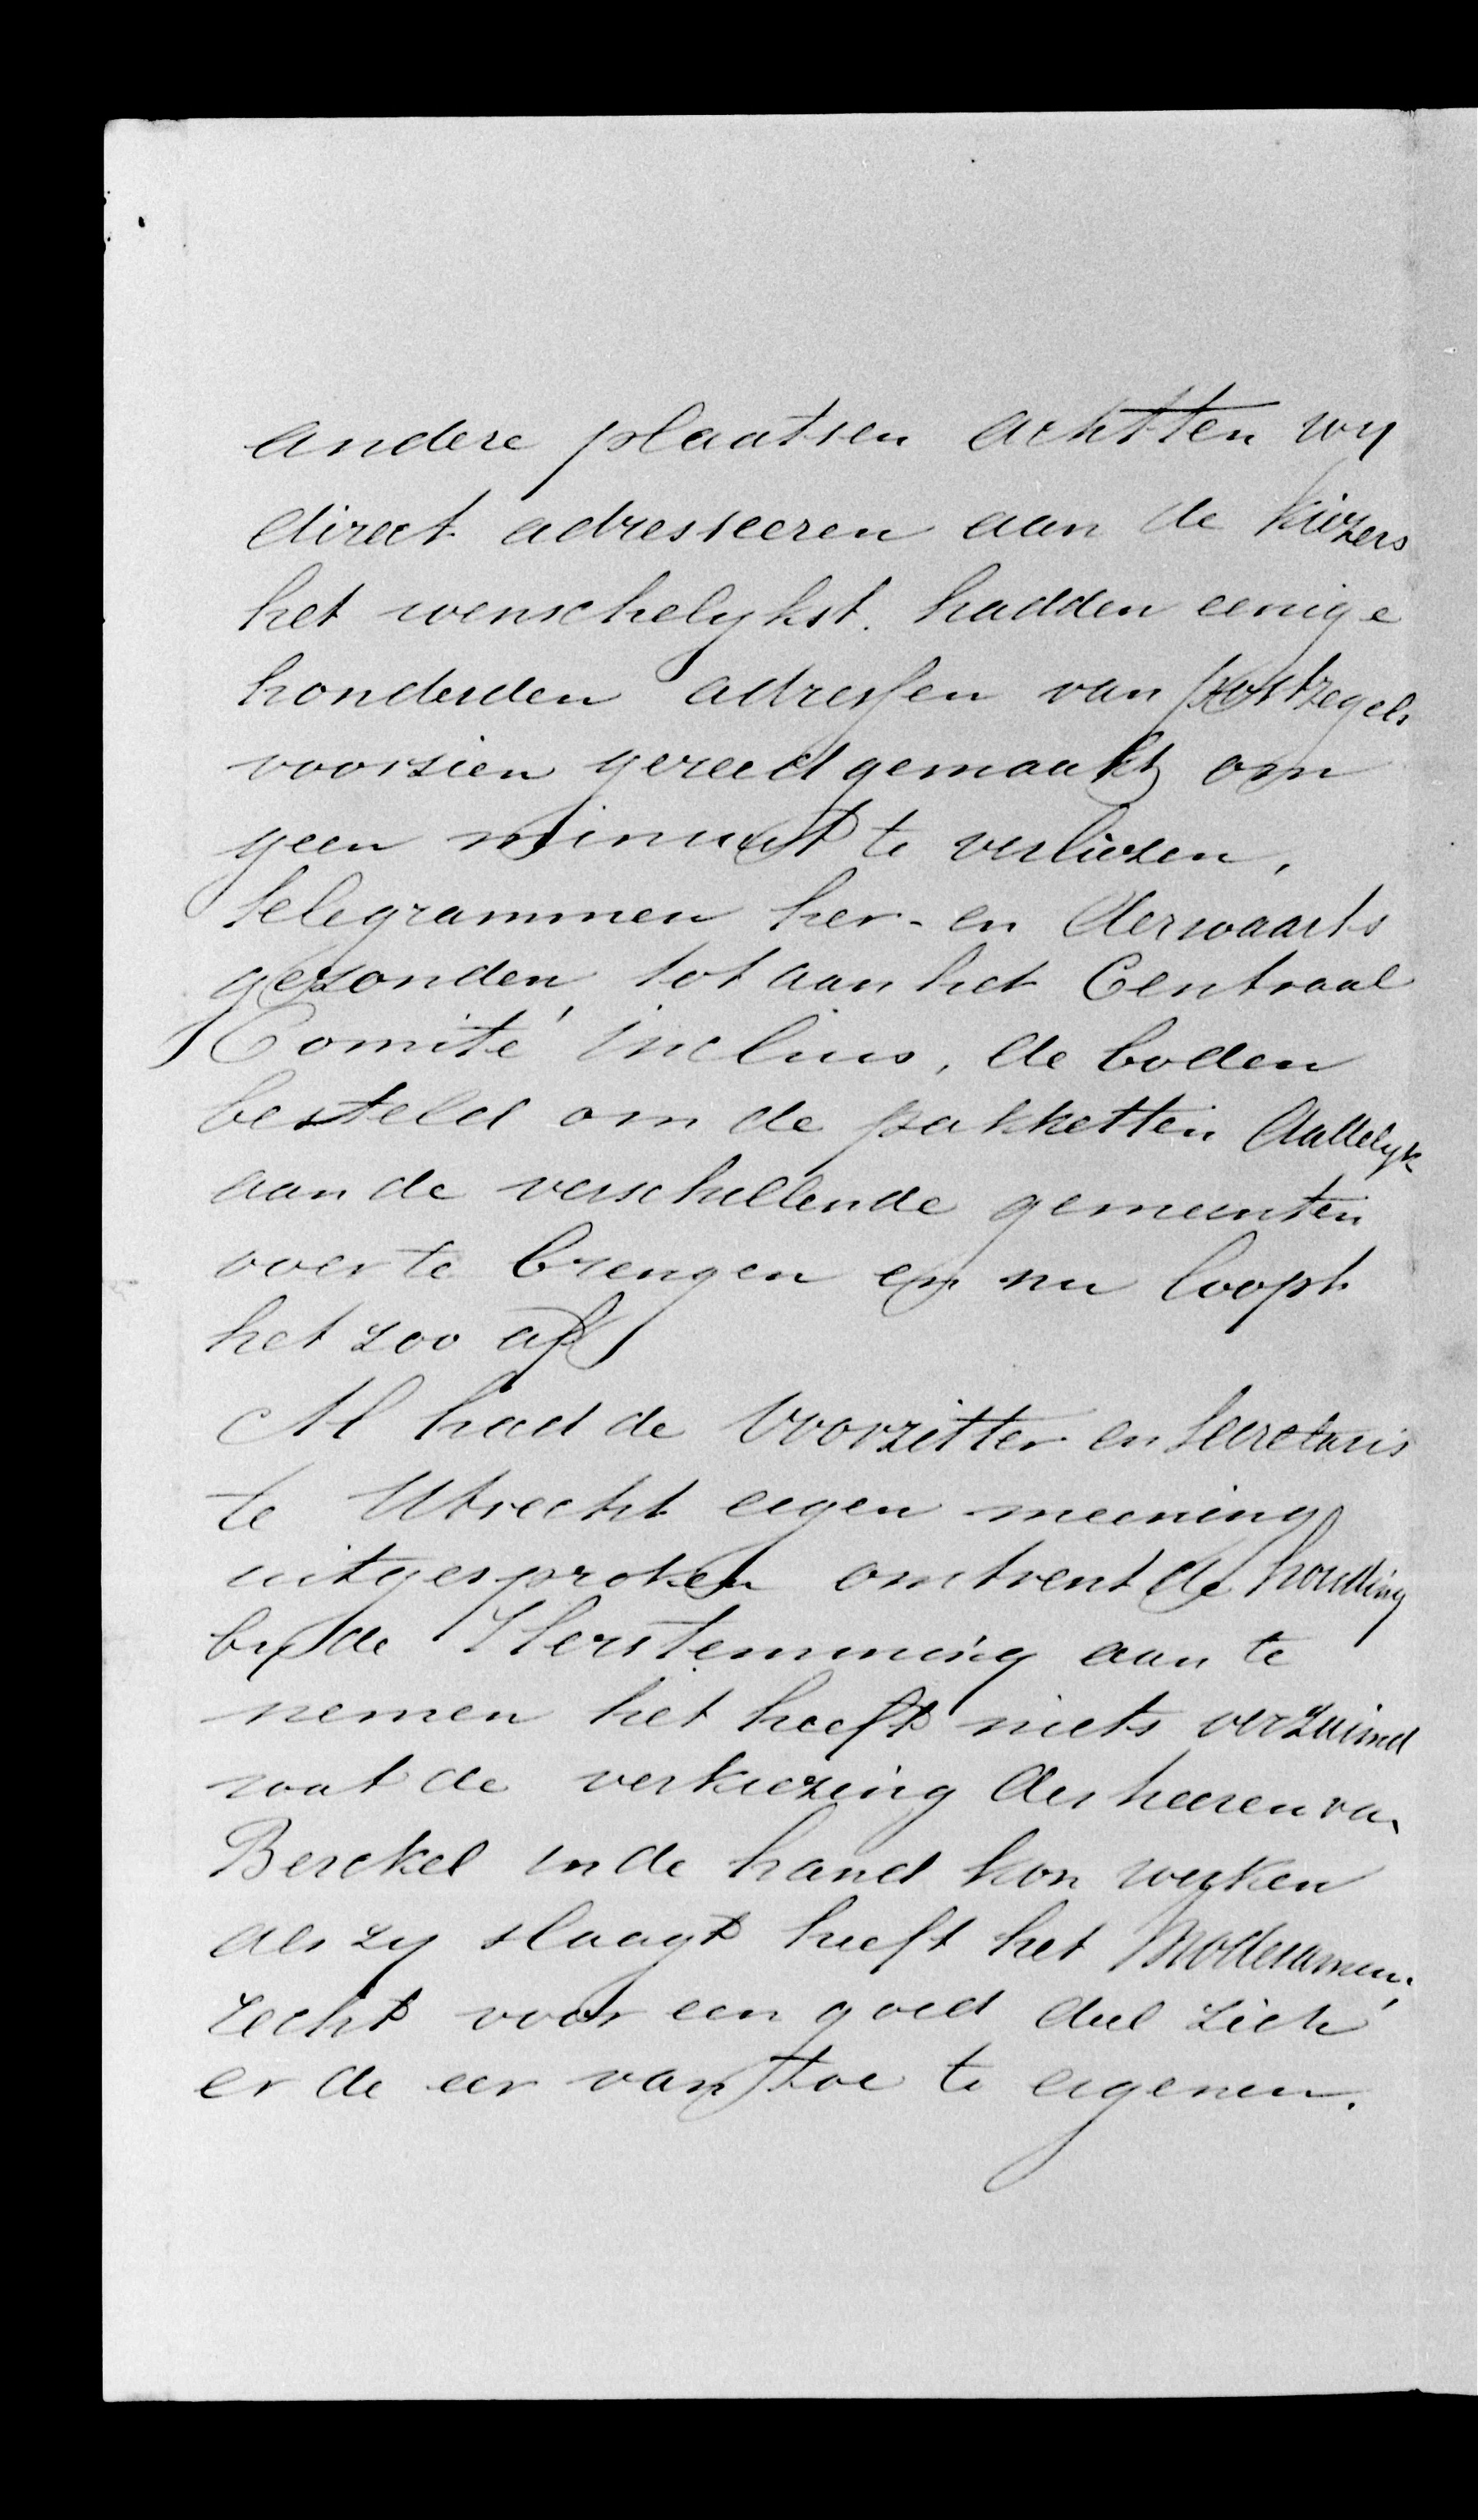 andere plaatsen achtten wy
direct adresseeren aan de kiezers
het wenschelykst. hadden eenige
honderden adressen van postzegels
voorzien gereed gemaakt om
geen minuut te verliezen,
telegrammen her- en derwaarts
gezonden, tot aan het Centraal
Comité incluis, de boden
besteld om de pakketten dadelyk
aan de verschillende gemeenten
over te brengen en nu loopt
het zoo af
Al had de Voorzitter en Secretaris
te Utrecht eigen meening
uitgesproken omtrent de houding
by de Herstemming aan te
nemen het heeft niets verzuimd
wat de verkiezing des heeren van
Berckel in de hand kon werken
als zy slaagt heeft het Moderamen
recht voor een goed deel zich
er de eer van toe te eigenen.